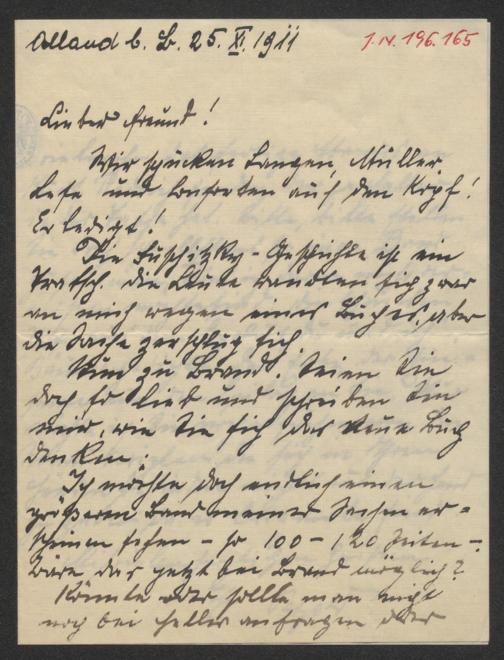 Alland b. B. 25. XI. 1911
I.N. 196.165
Lieber Freund!
Wir spucken Langen, Müller
und Consorten auf den Kopf!
Erledigt!
Die Suschitzky-Geschichte ist ein
Tratsch. Die Leute wandten sich zwar
an mich wegen eines Buches, aber
die Sache zerschlug sich.
Nun zu Brand! Seien Sie
doch so lieb und schreiben Sie
mir, wie Sie sich das neue Buch
denken.
Ich möchte doch endlich einen
größeren Band meiner Sachen er-
scheinen sehen – so 100 – 120 Seiten –.
Wäre das jetzt bei Brand möglich?
Könnte oder sollte man nicht
noch bei Heller anfragen oder